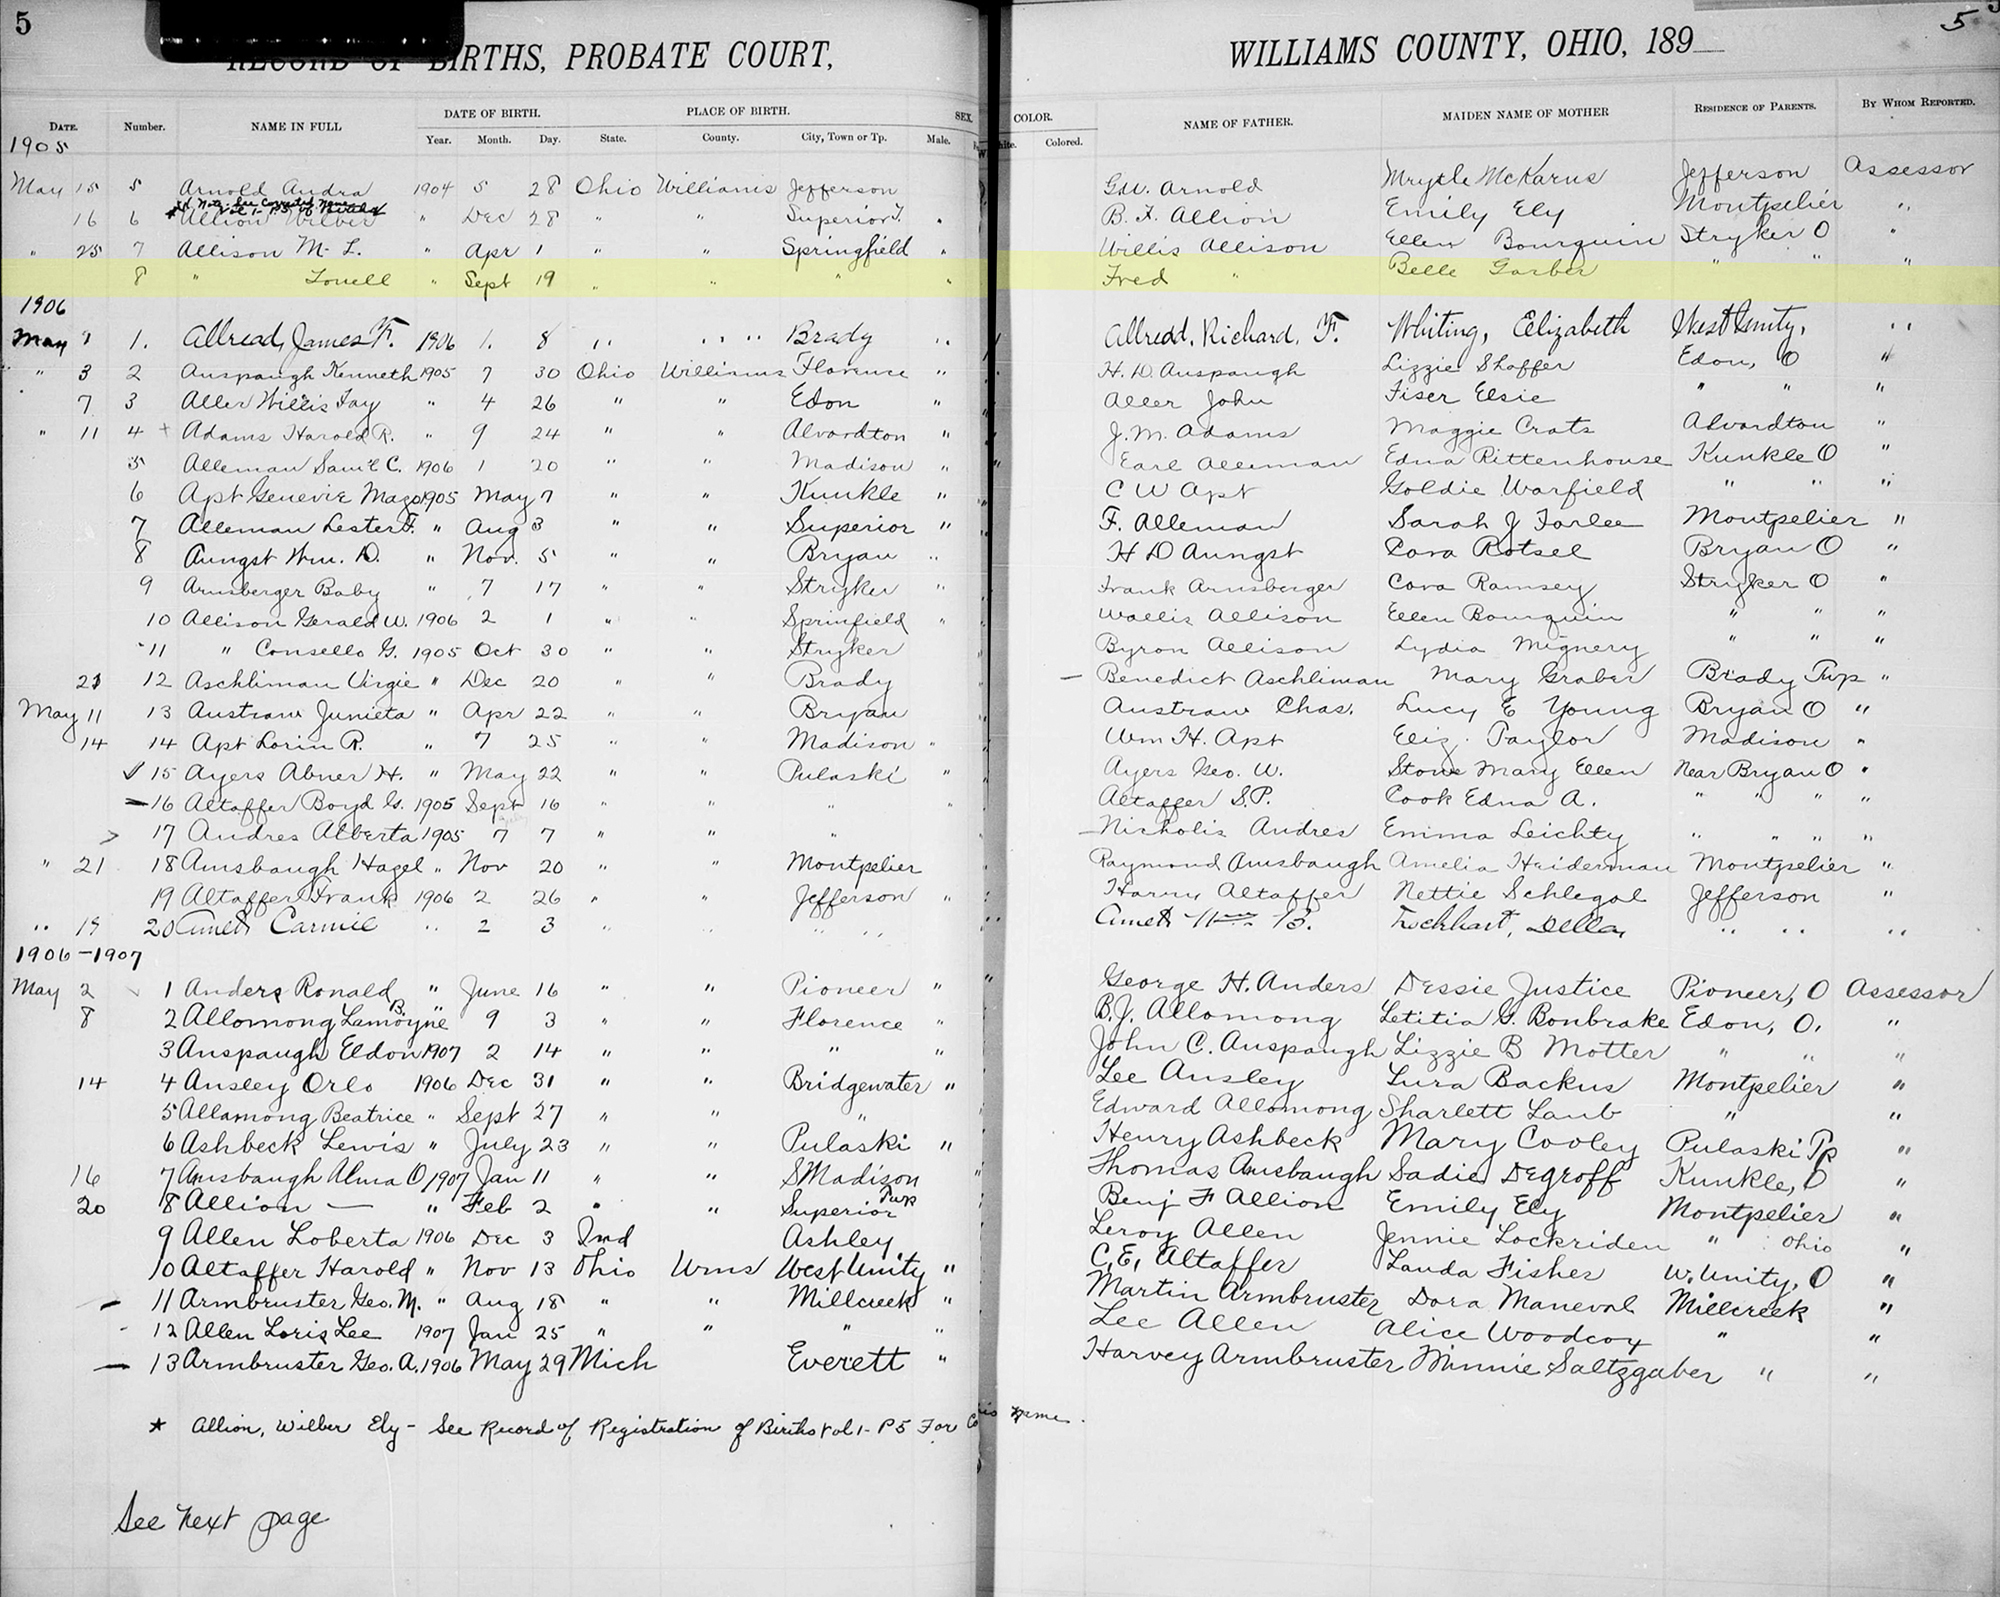 5
RECORD OF BIRTHS, PROBATE COURT, WILLIAMS COUNTY, OHIO, 189
5
DATE. Number. NAME IN FULL DATE OF BIRTH. PLACE OF BIRTH. SEX. COLOR. NAME OF FATHER. MAIDEN NAME OF MOTHER RESIDENCE OF PARENTS. BY WHOM REPORTED.
Year. Month. Day. State. County. City, Town or Tp. Male. Colored.
1905
May 15 5 Arnold Audra 1904 5 28 Ohio Williams Jefferson Geo. Arnold Mrytle McKarns Jefferson Assessor
16 6 Allion Wilber " Dec 28 " " Superior T. " B. F. Allion Emily Ely Montpelier "
" 25 7 Allison M. L. " Apr 1 " " Springfield " Willis Allison Ellen Bourquin Stryker O "
8 " Lowell " Sept 19 " " " " Fred " Belle Garber " " "
1906
May 1 1. Allread, James F. 1906 1. 8 " " " Brady " Allread, Richard, F. Whiting, Elizabeth West Unity, "
" 3 2 Auspaugh Kenneth 1905 7 30 Ohio Williams Florence " H. D. Auspaugh Lizzie Shaffer Edon, O "
7 3 Aller Willis Fay " 4 26 " " Edon " Aller John Fiser Elsie " " "
" 11 4 Adams Harold R. " 9 24 " " Alvordton " J. M. Adams Maggie Crats Alvordton "
5 Alleman Saml C. 1906 1 20 " " Madison " Earl Alleman Edna Rittenhouse Kunkle O "
6 Apt Genevie Mazo 1905 May 7 " " Kunkle " C W Apt Goldie Warfield " " "
7 Alleman Lester F. " Aug 3 " " Superior " F. Alleman Sarah J Farlee Montpelier "
8 Aungst Wm. D. " Nov. 5 " " Bryan " H D Aungst Cora Rotsel Bryan O "
9 Arnsberger Baby " 7 17 " " Stryker " Frank Arnsberger Cora Ramsey Stryker O "
10 Allison Gerald W. 1906 2 1 " " Sprinfield " Wallis Allison Ellen Bourquin " " "
11 " Consello G. 1905 Oct 30 " " Stryker Byron Allison Lydia Mignery " " "
21 12 Aschliman Virgie " Dec 20 " " Brady Benedict Aschliman Mary Graber Brady Twp "
May 11 13 Austraw Junieta " Apr 22 " " Bryan Austraw Chas. Lucy E Young Bryan O "
14 14 Apt Lorin R. " 7 25 " " Madison " Wm H. Apt Eliz. Taylor Madison "
15 Ayers Abner H. " May 22 " " Pulaski " Ayers Geo. W. Stone Mary Ellen Near Bryan O "
16 Altaffer Boyd G. 1905 Sept 16 " " " " Altaffer S.P. Cook Edna A. " " " "
17 Andres Alberta 1905 7 7 " " " Nicholis Andres Emma Leichty " " " "
" 21 18 Amsbaugh Hazel " Nov 20 " " Montpelier Raymond Amsbaugh Amelia Heiderman Montpelier "
19 Altaffer Frank 1906 2 26 " " Jefferson " Harvy Altaffer Nettie Schlegal Jefferson "
" 19 20 Carmil " 2 3 " " " " Lockhart, Della, " " "
1906-1907
May 2 1 Anders Ronald " June 16 " " Pioneer " George H. Anders Dessie Justice Pioneer, O Assessor
8 2 Allomong Lamoyne B. " 9 3 " " Florence " B. J. Allomong Letitia G. Bonbrake Edon, O. "
3 Anspaugh Eldon 1907 2 14 " " " " John C. Auspaugh Lizzie B Motter " " "
14 4 Ansley Orlo 1906 Dec 31 " " Bridgewater " Lee Ansley Lura Backus Montpelier "
5 Allamong Beatrice " Sept 27 " " " Edward Allomong Sharlett Laub " "
6 Ashbeck Lewis " July 23 " " Pulaski " Henry Ashbeck Mary Cooley Pulaski Tp "
16 7 Amsbaugh Alma O 1907 Jan 11 " " S Madison Thomas Amsbaugh Sadie Degroff Kunkle, O "
20 8 Allion — " Feb 2 " " Superior Twp Benj F Allion Emily Ely Montpelier "
9 Allen Loberta 1906 Dec 3 Ind Ashley Leroy Allen Jennie Lockriden " Ohio "
10 Altaffer Harold " Nov 13 Ohio Wms West Unity " C. E. Altaffer Landa Fisher W. Unity, O "
11 Armbruster Geo. M. " Aug 18 " " Millcreek " Martin Armbruster Dora Maneval Millcreek "
12 Allen Loris Lee 1907 Jan 25 " " " " Lee Allen Alice Woodcox " "
13 Armbruster Geo. A. 1906 May 29 Mich Everett " Harvey Armbruster Minnie Saltzgaber " "
* Allion, Wilber Ely - See Record of Registration of Births Vol 1- P5 For name.
See next page